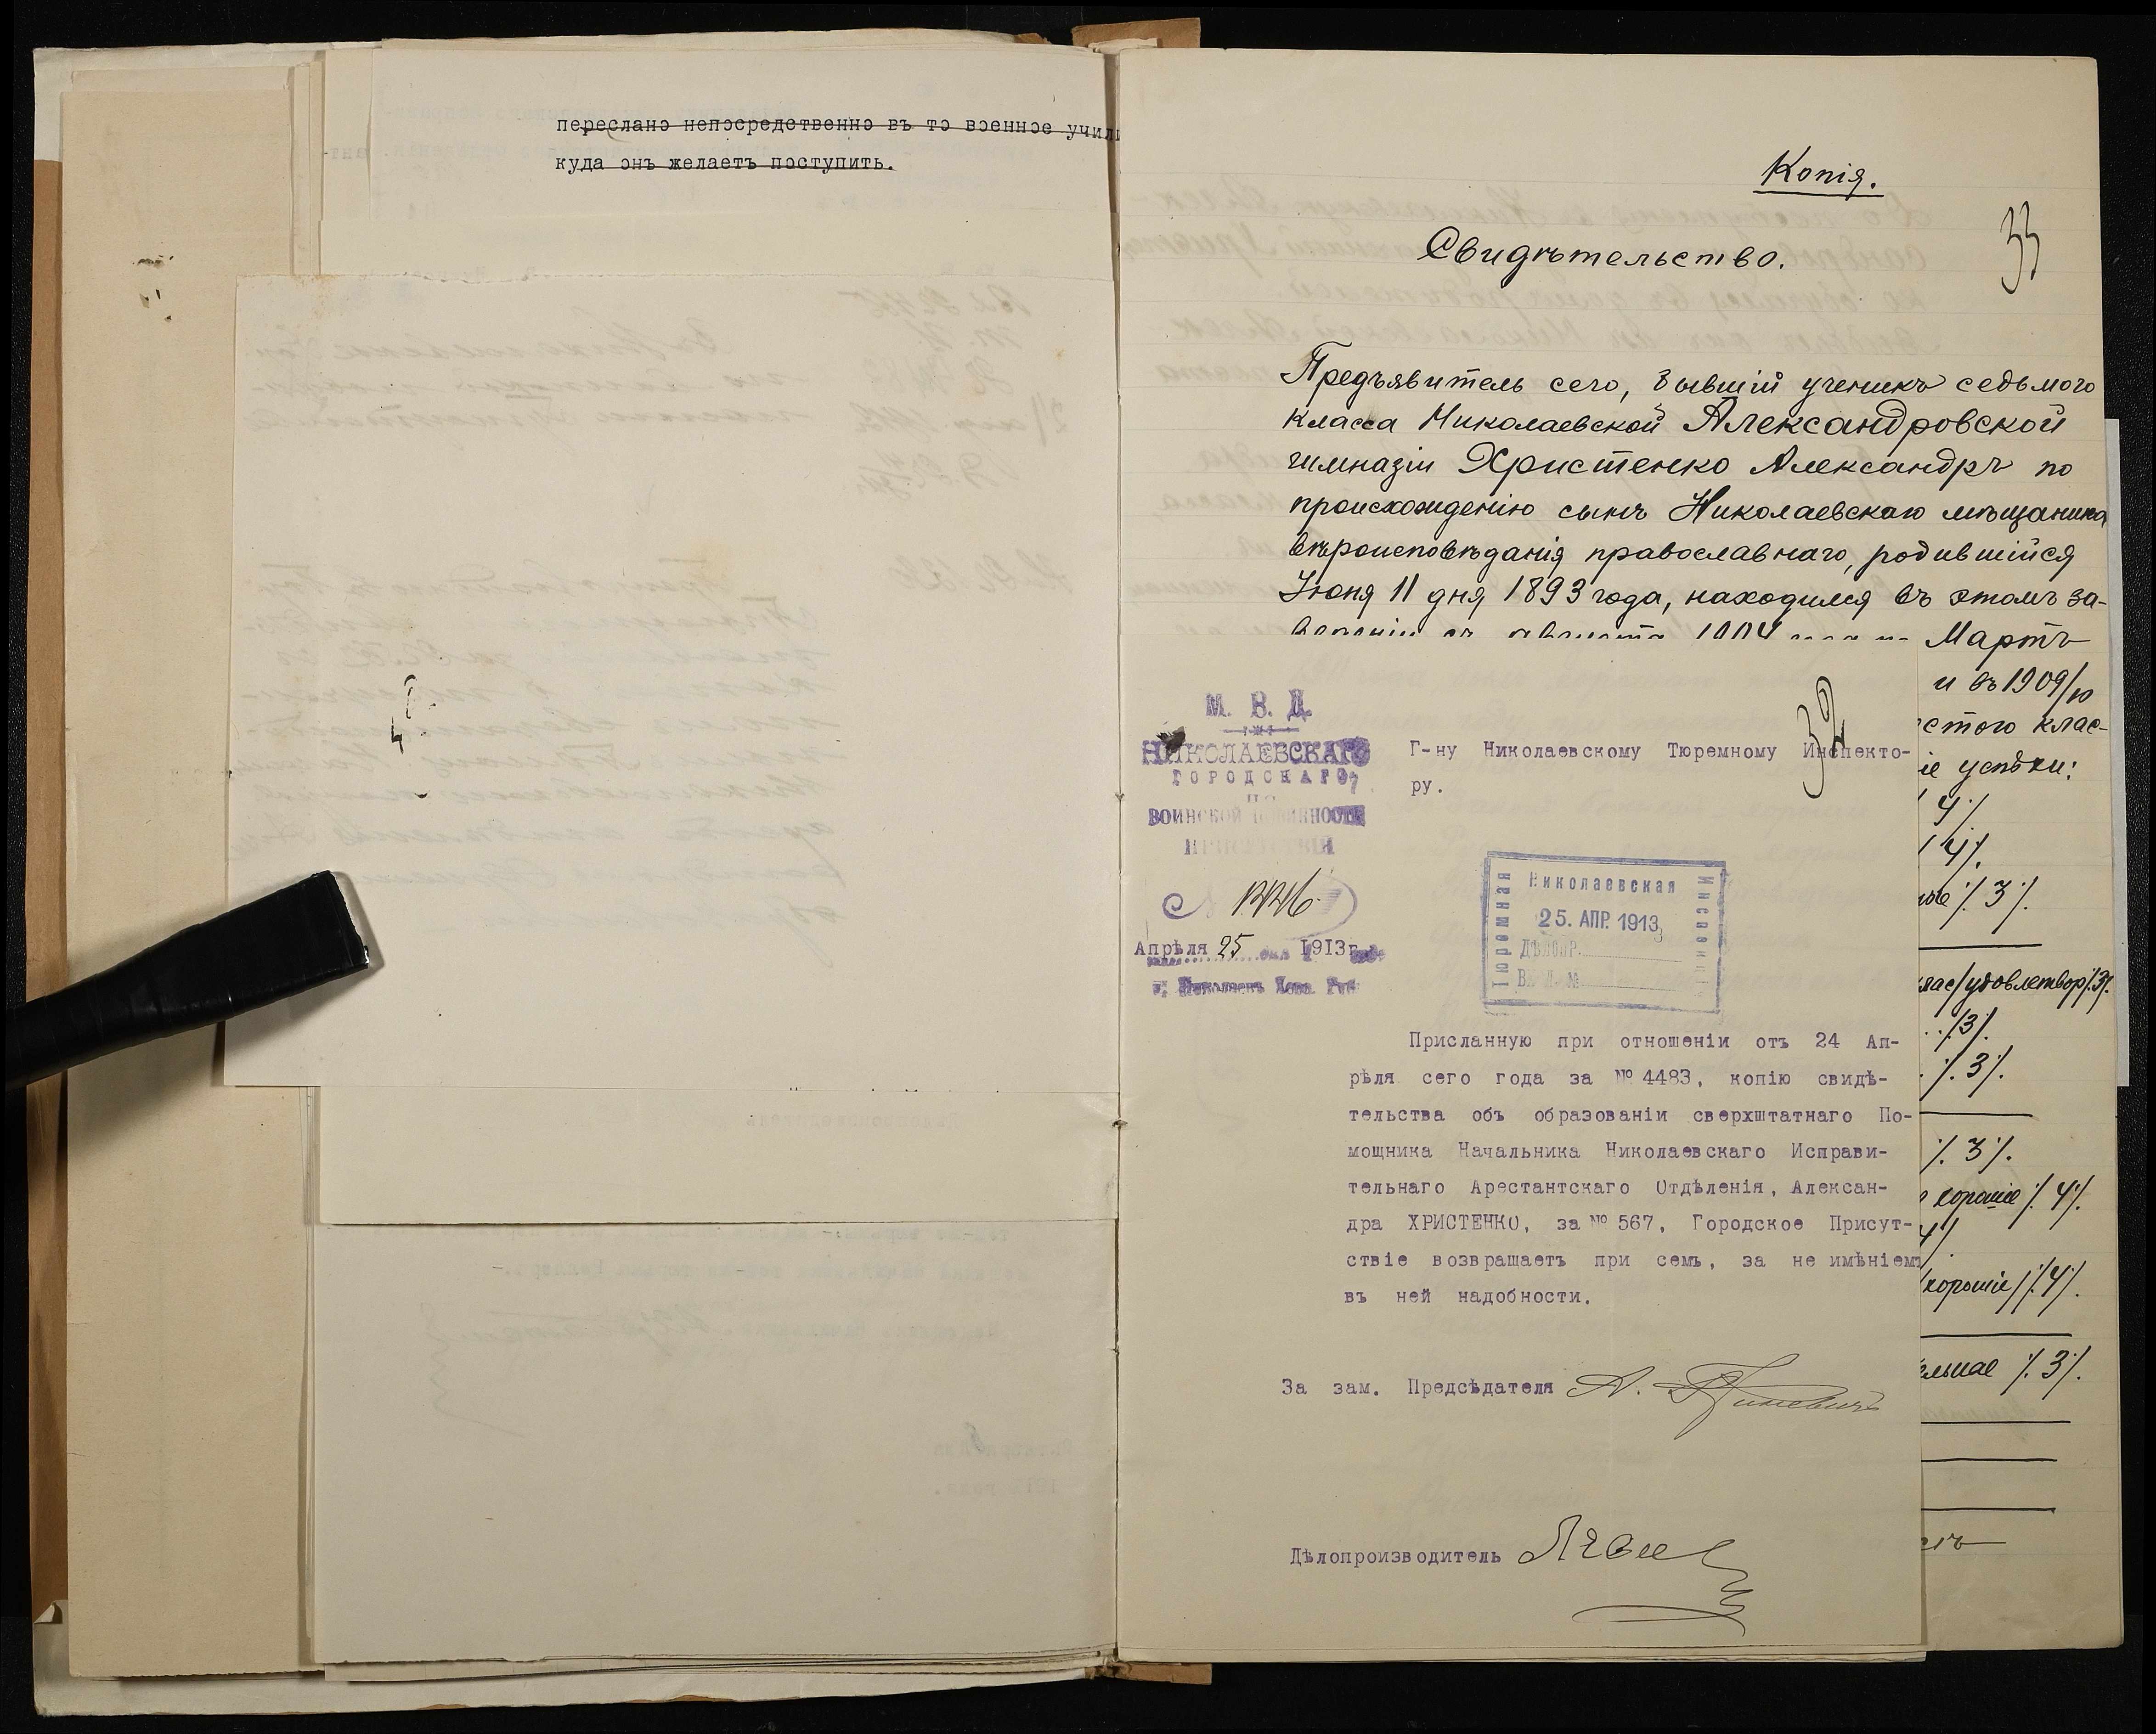 переслано непосредственно въ то военное учил
куда онъ желаетъ поступить.
Копія.
33
Свидѣтельство.
Предъявитель сего, бывшій ученикъ седьмого
класса Николаевской Александровской
гимназіи Христенко Александръ по
происхожденію сынъ Николаевскаго мѣщанина
вѣроисповѣданія православнаго, родившійся
Іюня 11 дня 1893 года, находился въ этомъ за-
веденіи съ августа 1904 года по Мартъ
и въ 1909/10
стого клас-
іе успѣхи:
4
4
3
удовлетвор 3
3
3
3
хорошіе 4
хорошіе 4
ельное 3
32
М. В. Д.
НИКОЛАЕВСКАГО
ГОРОДСКАГО
ПО
ВОИНСКОЙ ПОВИННОСТИ
ПРИСУТСТВІЯ
Апрѣля 25 дня 1913 г.
г. Николаевъ Хер. Губ.
Г-ну Николаевскому Тюремному Инспекто-
ру.
Николаевская
Тюремная
Инспекція
25. АПР. 1913
ДѢЛОПР.
Вх. Д. №
Присланную при отношеніи отъ 24 Ап-
рѣля сего года за № 4483, копію свидѣ-
тельства объ образованіи сверхштатнаго По-
мощника Начальника Николаевскаго Исправи-
тельнаго Арестантскаго Отдѣленія, Алексан-
дра ХРИСТЕНКО, за № 567, Городское Присут-
ствіе возвращаетъ при семъ, за не имѣніемъ
въ ней надобности.
За зам. Предсѣдателя А.
Дѣлопроизводитель